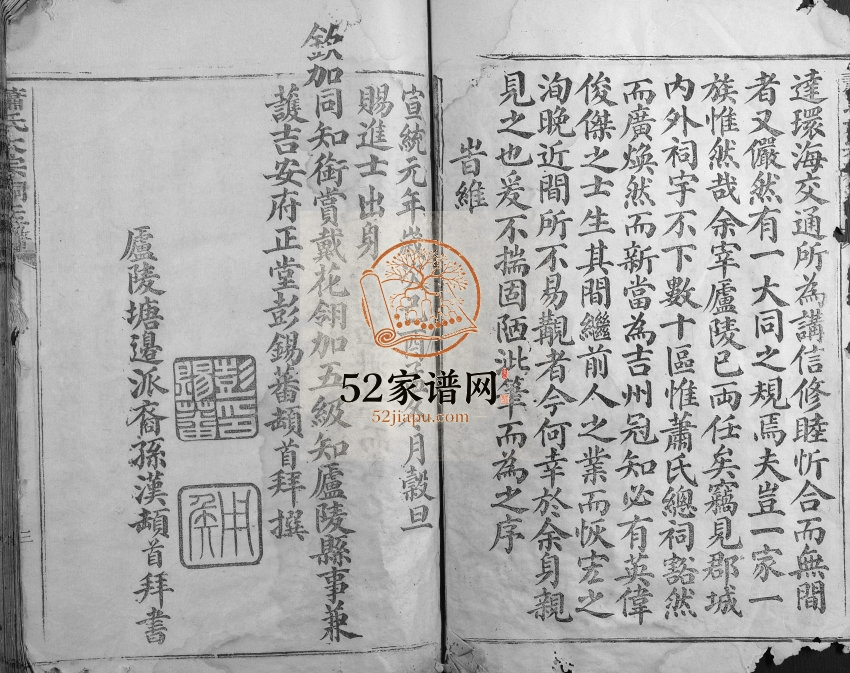 達環海交通所為講信修睦忻合而無間
者又儼然有一大同之規焉夫豈一家一
族惟然哉余宰廬陵已両任矣竊見郡城
内外祠宇不下數十區惟蕭氏總祠豁然
而廣煥然而新當為吉州冠知必有英偉
俊傑之士生其間繼前人之業而恢宏之
洵晚近間所不易觀者今何幸於余身親
見之也爰不揣固陋泚筆而為之序
旹維
宣統元年歲 月穀旦
賜進士出身
欽加同知銜賞戴花翎加五級知廬陵縣事兼
護吉安府正堂彭錫蕃頓首拜撰
廬陵塘邉派裔孫漢頡首拜書
蕭氏大宗
三
52家谱网
52jiapu.com